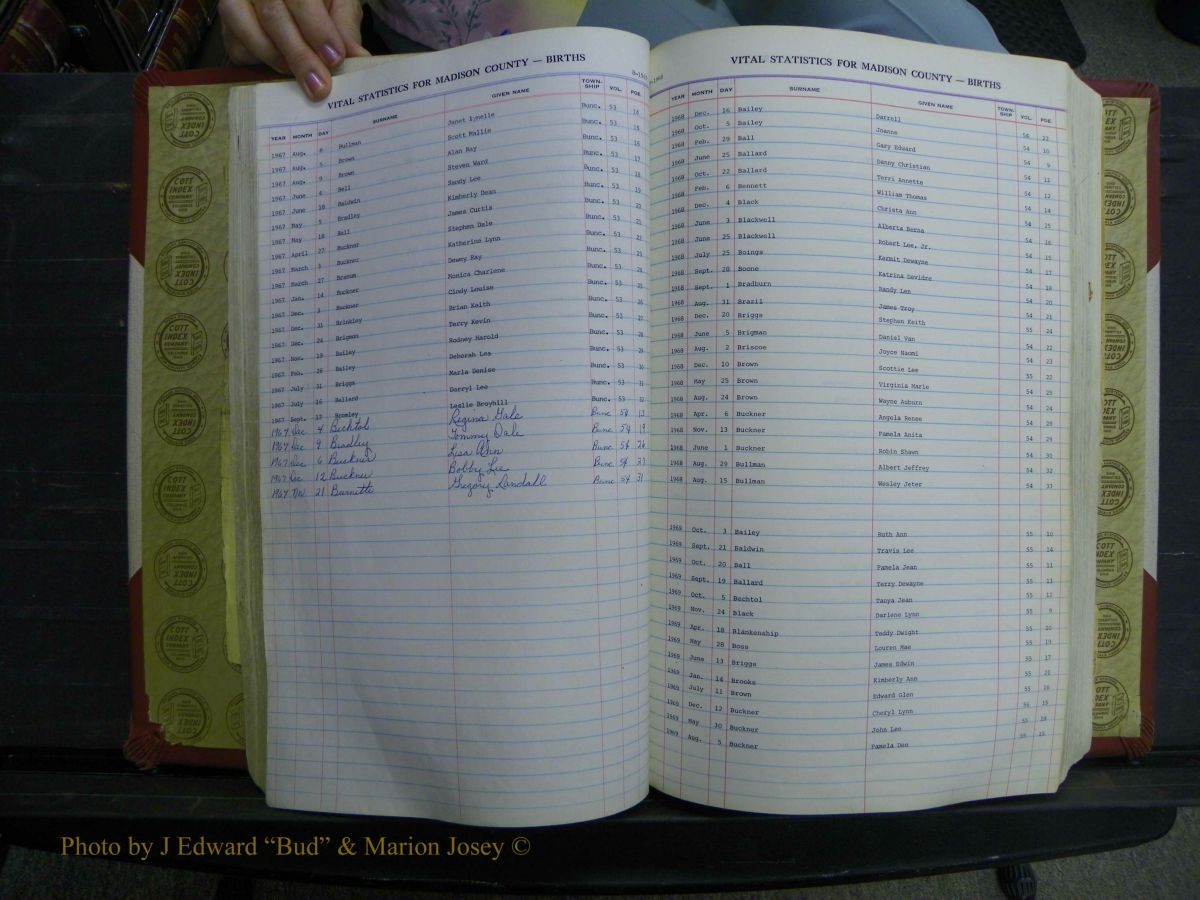 VITAL STATISTICS FOR MADISON COUNTY — BIRTHS
YEAR MONTH DAY SURNAME GIVEN NAME TOWN-SHIP VOL. PGE.
1967 Aug. 8 Bullman Janet Lynelle Bunc. 53 14
1967 Aug. 5 Brown Scott Mallie Bunc. 53 15
1967 Aug. 9 Brown Alan Ray Bunc. 53 16
1967 June 4 Bell Steven Ward Bunc. 53 17
1967 June 18 Baldwin Sandy Lee Bunc. 53 18
1967 May 5 Bradley Kimberly Dean Bunc. 53 19
1967 May 18 Ball James Curtis Bunc. 53 20
1967 April 27 Buckner Stephen Dale Bunc. 53 21
1967 March 3 Buckner Katherine Lynn Bunc. 53 22
1967 March 27 Branum Dewey Ray Bunc. 53 23
1967 Jan. 14 Buckner Monica Charlene Bunc. 53
1967 Dec. 3 Buckner Cindy Louise Bunc. 53
1967 Dec. 31 Brinkley Brian Keith Bunc. 53
1967 Dec. 24 Brigman Terry Kevin Bunc. 53
1967 Nov. 19 Bailey Rodney Harold Bunc. 53
1967 Feb. 26 Bailey Deborah Lea Bunc. 53
1967 July 31 Briggs Marla Denise Bunc. 53 30
1967 July 16 Ballard Darryl Lee Bunc. 53 31
1967 Sept. 12 Bromley Leslie Broyhill Bunc. 53 32
1967 Dec 4 Bechtol Regina Gale Bunc 54 13
1967 Dec 9 Bradley Tommy Dale Bunc 54 19
1967 Dec 6 Buckner Lisa Ann Bunc 54 26
1967 Dec 12 Buckner Bobby Lee Bunc 54 27
1967 Nov 21 Burnette Gregory Randall Bunc 54 31
VITAL STATISTICS FOR MADISON COUNTY — BIRTHS
YEAR MONTH DAY SURNAME GIVEN NAME TOWN-SHIP VOL. PGE.
1968 Dec. 16 Bailey Darrell 56 22
1968 Oct. 5 Bailey Joanne 54 10
1968 Feb. 29 Ball Gary Edward 54 9
1968 June 25 Ballard Danny Christian 54 11
1968 Oct. 22 Ballard Terri Annette 54 12
1968 Feb. 6 Bennett William Thomas 54 14
1968 Dec. 4 Black Christa Ann 54 25
1968 June 3 Blackwell Alberta Berna 54 16
1968 June 25 Blackwell Robert Lee, Jr. 54 15
1968 July 25 Boings Kermit Dewayne 54 17
1968 Sept. 28 Boone Katrina Devidre 54 18
1968 Sept. 1 Bradburn Randy Len 54 20
1968 Aug. 31 Brazil James Troy 54 21
1968 Dec. 20 Briggs Stephen Keith 55 24
1968 June 5 Brigman Daniel Van 54 22
1968 Aug. 2 Briscoe Joyce Naomi 54 23
1968 Dec. 10 Brown Scottie Lee 55 22
1968 May 25 Brown Virginia Marie 54 25
1968 Aug. 24 Brown Wayne Auburn 54 24
1968 Apr. 6 Buckner Angela Renee 54 28
1968 Nov. 13 Buckner Pamela Anita 54 29
1968 June 1 Buckner Robin Shawn 54 30
1968 Aug. 29 Bullman Albert Jeffrey 54 32
1968 Aug. 15 Bullman Wesley Jeter 54 33
1969 Oct. 3 Bailey Ruth Ann 55 10
1969 Sept. 21 Baldwin Travis Lee 55 14
1969 Oct. 20 Ball Pamela Jean 55 11
1969 Sept. 19 Ballard Terry Dewayne 55 13
1969 Oct. 5 Bechtol Tanya Jean 55 12
1969 Nov. 24 Black Darlene Lynn 55 9
1969 Apr. 18 Blankenship Teddy Dwight 55 20
1969 May 28 Boss Louren Mae 55 19
1969 June 13 Briggs James Edwin 55 17
1969 Jan. 14 Brooks Kimberly Ann 55 21
1969 July 11 Brown Edward Glen 55 16
1969 Dec. 12 Buckner Cheryl Lynn 56 15
1969 May 30 Buckner John Lee 55 18
1969 Aug. 5 Buckner Pamela Dee 55 15
COTT INDEX COMPANY
Photo by J Edward “Bud” & Marion Josey ©